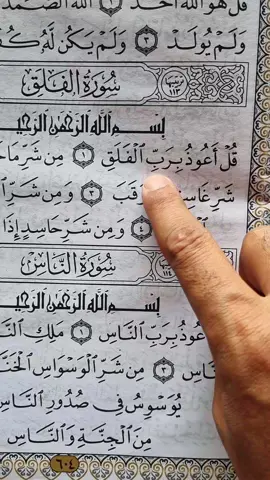 قُلْ هُوَ ٱللَّهُ أَحَدٌ ١ ٱللَّهُ ٱلصَّمَدُ
وَلَمْ يُولَدْ ٣ وَلَمْ يَكُن لَّهُۥ
سُورَةُ الْفَلَقِ ١١٣
بِسْمِ ٱللَّهِ ٱلرَّحْمَٰنِ ٱلرَّحِيمِ
قُلْ أَعُوذُ بِرَبِّ ٱلْفَلَقِ ١ مِن شَرِّ مَا
شَرِّ وَقَبَ ٣ وَمِن شَرِّ
٤ وَمِن شَرِّ حَاسِدٍ إِذَا
سُورَةُ النَّاسِ ١١٤
بِسْمِ ٱللَّهِ ٱلرَّحْمَٰنِ ٱلرَّحِيمِ
بِرَبِّ ٱلنَّاسِ ١ مَلِكِ
٣ مِن شَرِّ ٱلْوَسْوَاسِ
يُوَسْوِسُ فِى صُدُورِ ٱلنَّاسِ
مِنَ ٱلْجِنَّةِ وَٱلنَّاسِ
٦٠٤